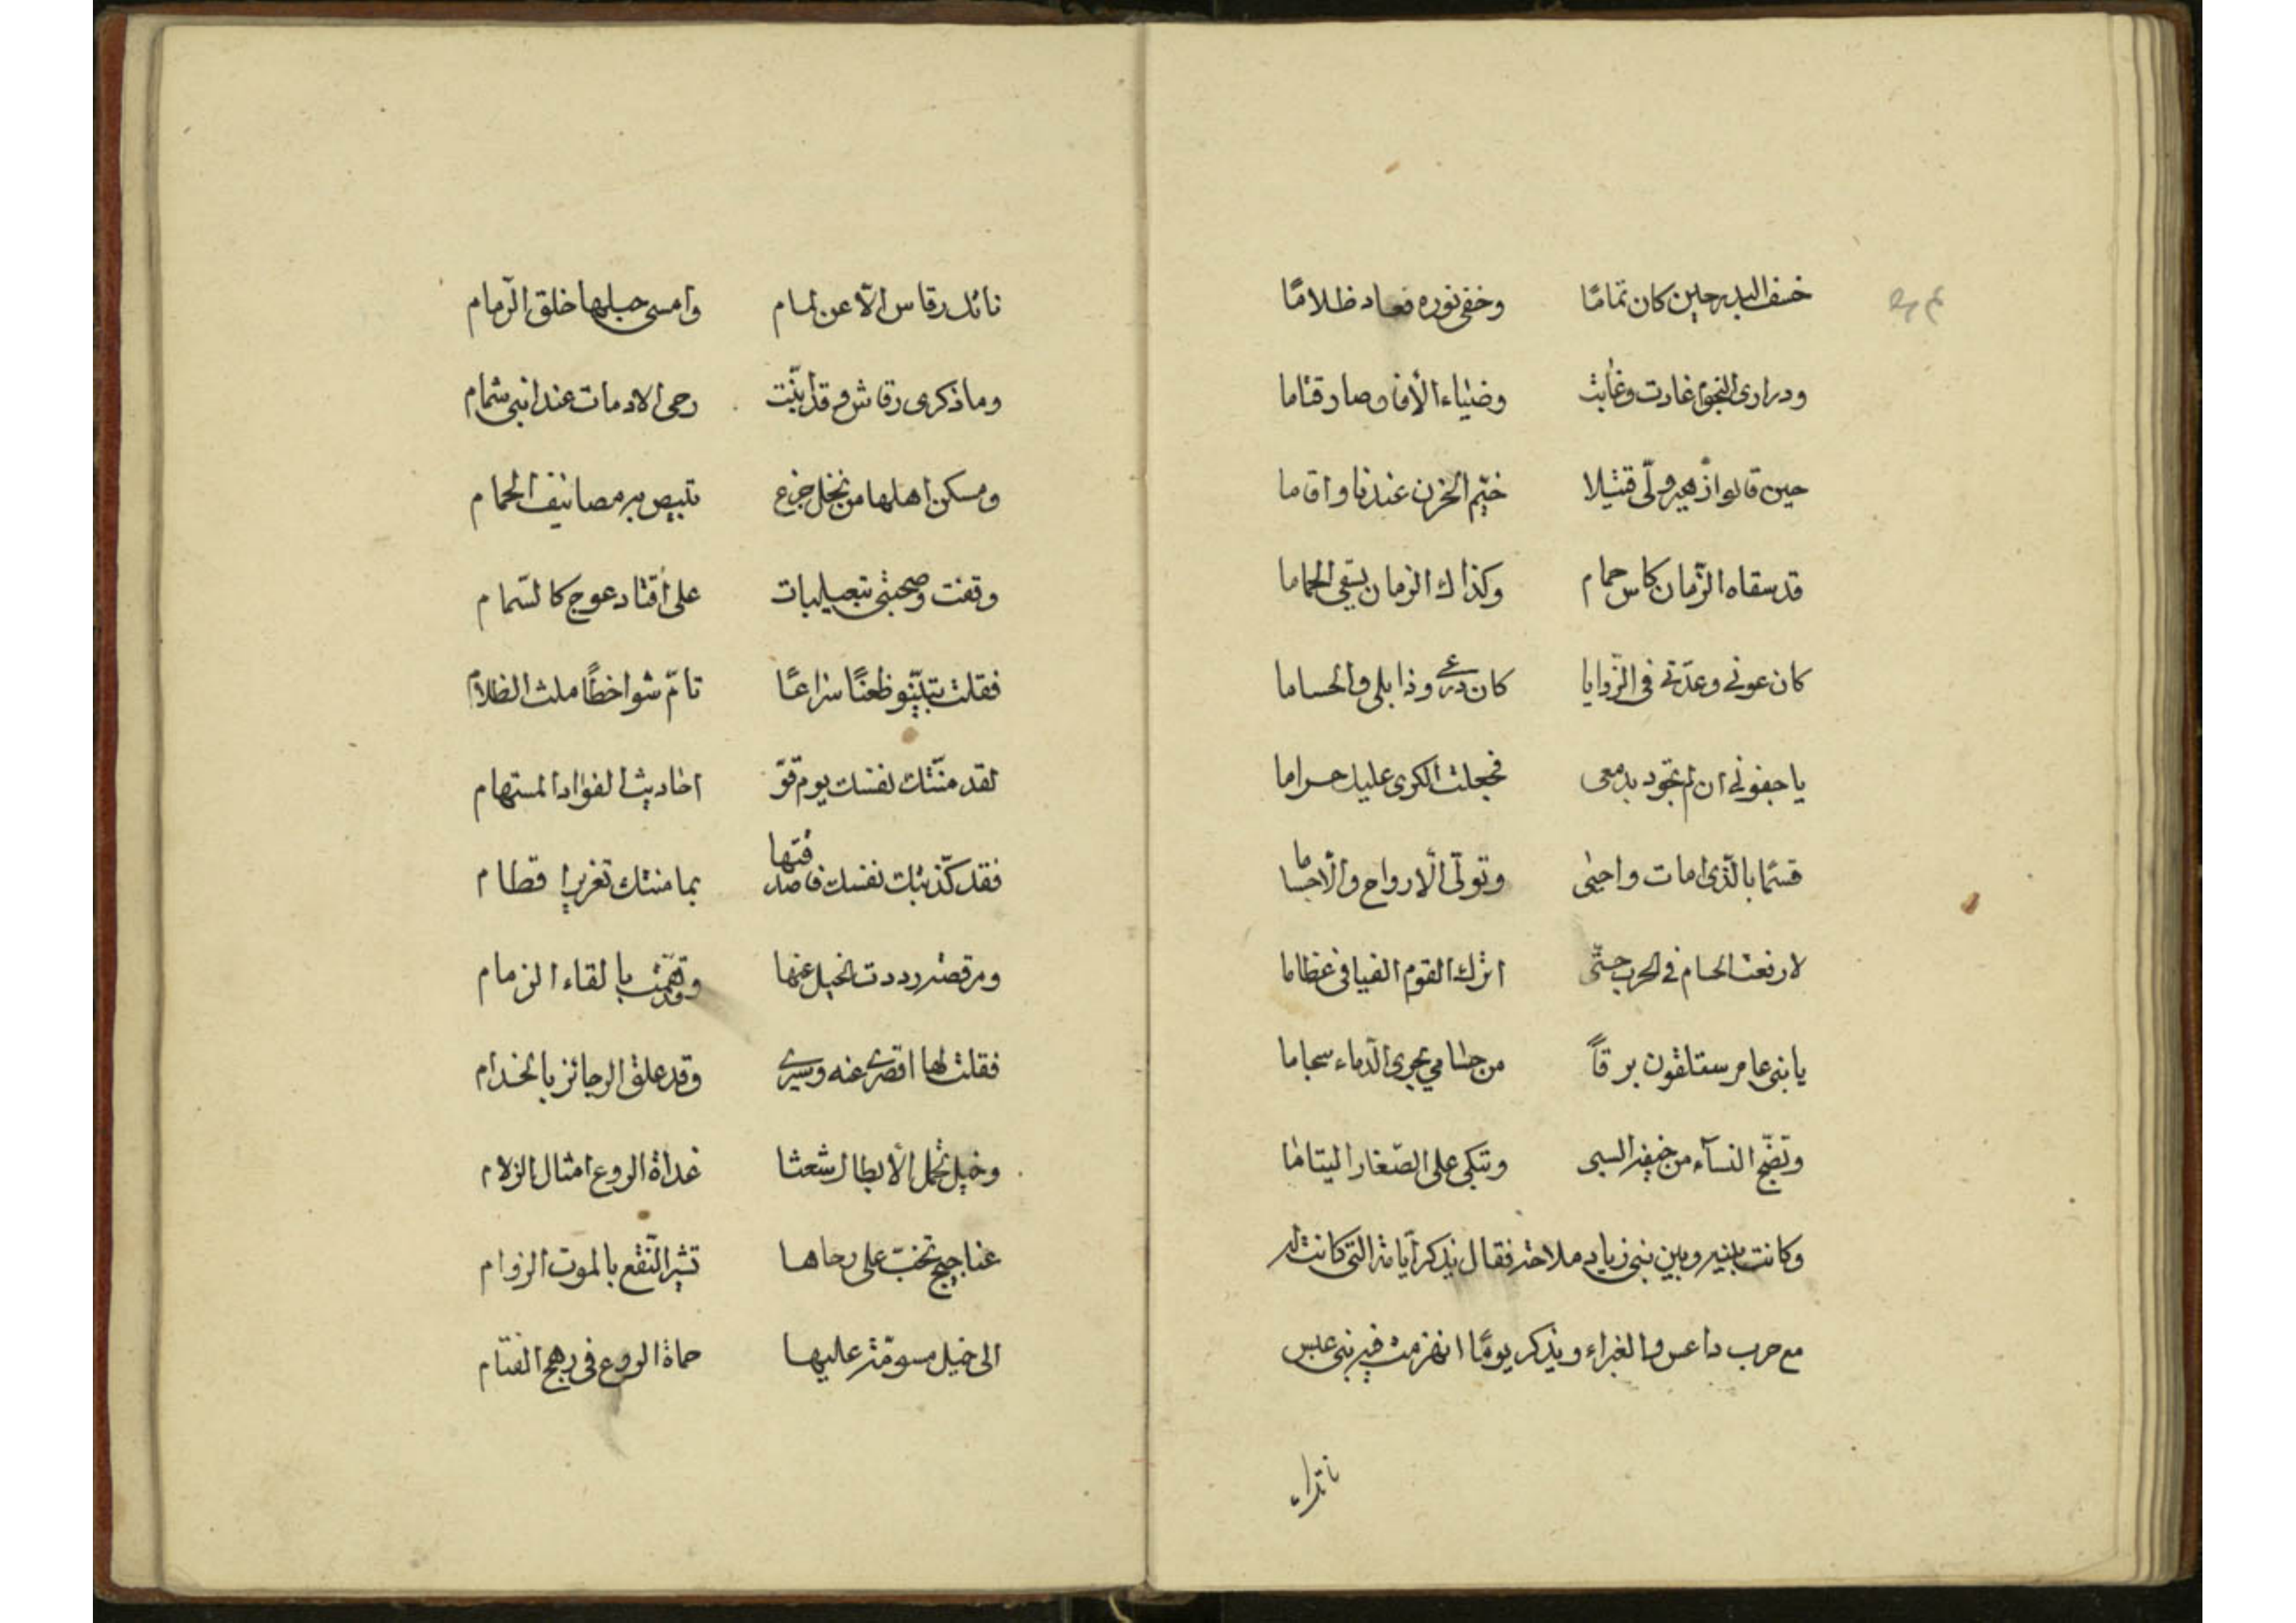 خسف البدر حين كان تمامًا وخفى نوره فعاد ظلامًا
ودرارى النجوم غارت وغابت وضياء الأفاق صار قتاما
حين قالوا زهير ولّى قتيلا خيّم الحزن عندنا واقاما
قد سقاه الزّمان كاس حمام وكذاك الزمان يسقى الحماما
كان عونى وعدّتى فى الرّزايا كان درعى وذابلى والحساما
يا جفونى ان لم تجود بدمعى فجعلت الكرى عليك حراما
قسمًا بالّذى امات واحيى وتولّى الارواح والأجساما
لا رفعت الحسام فى الحرب حتّى اترك القوم الفيافى عظاما
يا بنى عامر ستلقون برقاً من حسامي يجرى الدّماء سجاما
وتضّج النسآء من خيفة السبى وتبكى على الصّغار اليتاما
وكانت بينه وبين بنى زياد ملاحة فقال يذكر ايّامه التى كانت له
مع حرب داعس والغبراء ويذكر يومًا انهزمت فيه بنى عبس
ناتك رقاس الّا عن لمام وامسى حبلها خلق الرّمام
وما ذكرى رقاش وقد ابنّت رحى الادمات عند ابنى شمام
ومسكن اهلها من نخل جزع تبيض به مصانيف الحمام
وقفت وصحبتى على أقتاد عوج كالسّمام
فقلت تبيّنو ظعنًا سراعًا تامّ شواخطًا ملث الظلام
لقد منّتك نفسك يوم قوّ احاديث الفواد المستهام
فقد كذّبتك نفسك فاصدقنها بما منتك تغريرا قطام
ومرقصة رددت الخيل عنها وقد همّت بالقاء الزمام
فقلت لها اقصرى عنه وسيرى وقد علق الرجائز بالخدام
وخيل تحمل الأبطال شعثا غداة الروع امثال الزلام
عناجيج تخبّ على رحاها تثير النّقع بالموت الزوام
الى خيل مسوّمة عليها حماة الروع فى رهج القتام